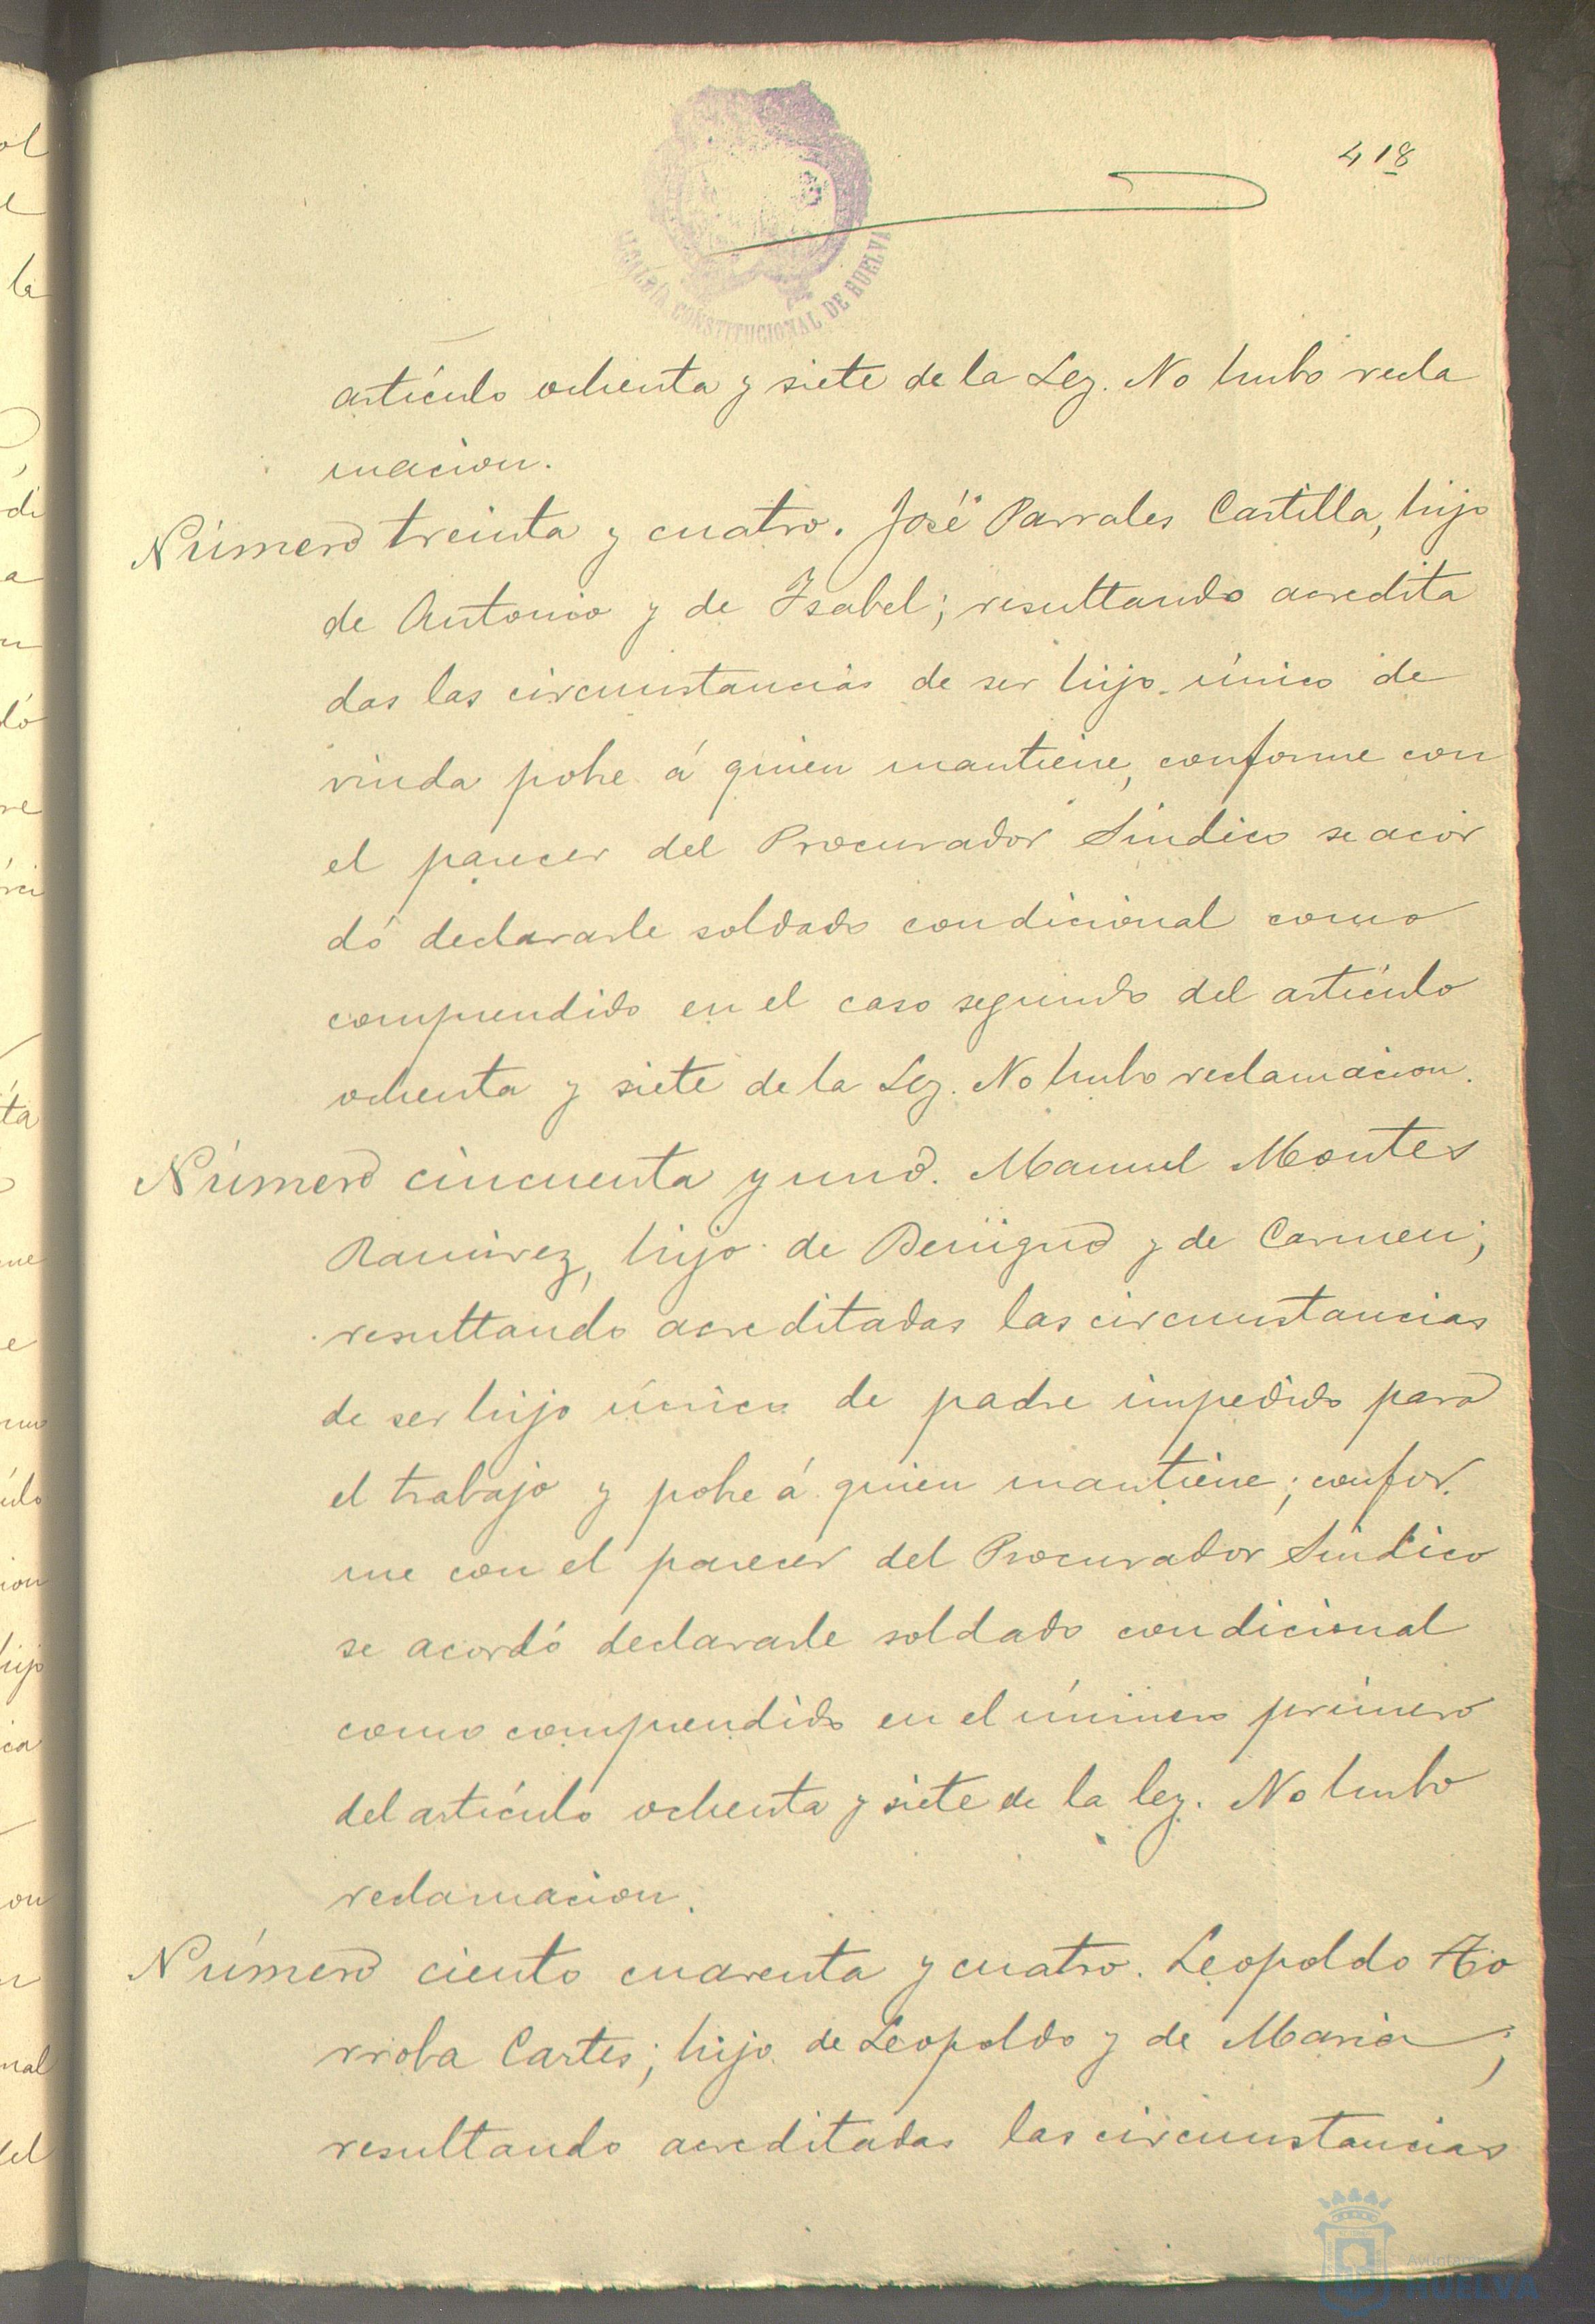 418
ALCALDÍA CONSTITUCIONAL DE HUELVA
artículo ochenta y siete de la Ley. No hubo recla
macion.
Número treinta y cuatro. José Parrales Castilla, hijo
de Antonio y de Isabel; resultando acredita
das las circunstancias de ser hijo único de
viuda pobre á quien mantiene, conforme con
el parecer del Procurador Síndico se acor
dó declararle soldado condicional como
comprendido en el caso segundo del artículo
ochenta y siete de la Ley. No hubo reclamacion.
Número cincuenta y uno. Manuel Montes
Ramirez, hijo de Benigno y de Carmen;
resultando acreditadas las circunstancias
de ser hijo único de padre impedido para
el trabajo y pobre á quien mantiene; confor
me con el parecer del Procurador Síndico
se acordó declararle soldado condicional
como comprendido en el número primero
del artículo ochenta y siete de la ley. No hubo
reclamacion.
Número ciento cuarenta y cuatro. Leopoldo
Cartes; hijo de Leopoldo y de Maria;
resultando acreditadas las circunstancias
Ayuntamiento
HUELVA